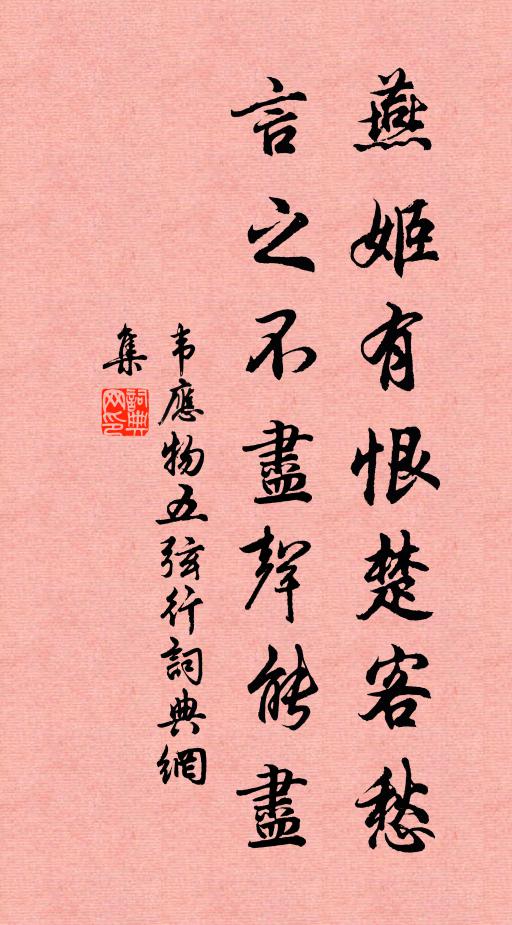 燕姬有恨楚客愁
言之不盡聲能盡
韦應物五弦行詞典網
集
詞典网印